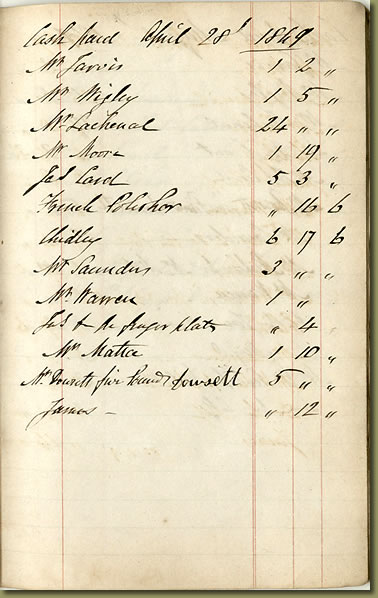 Cash paid April 28 1849
Mr Jarvis 1 2 "
Mr Wigley 1 5 "
Mr Lachenal 24 " "
Mr Moore 1 19 "
Jas Card 5 3 "
French Polishor " 16 6
Chidley 6 17 6
Mr Saunders 3 " "
Mr Warren 1 " "
finger plats " 4 "
Mrs Mattea 1 10 "
Mr Dowsett five Pounds Dowsett 5 " "
James - " 12 "